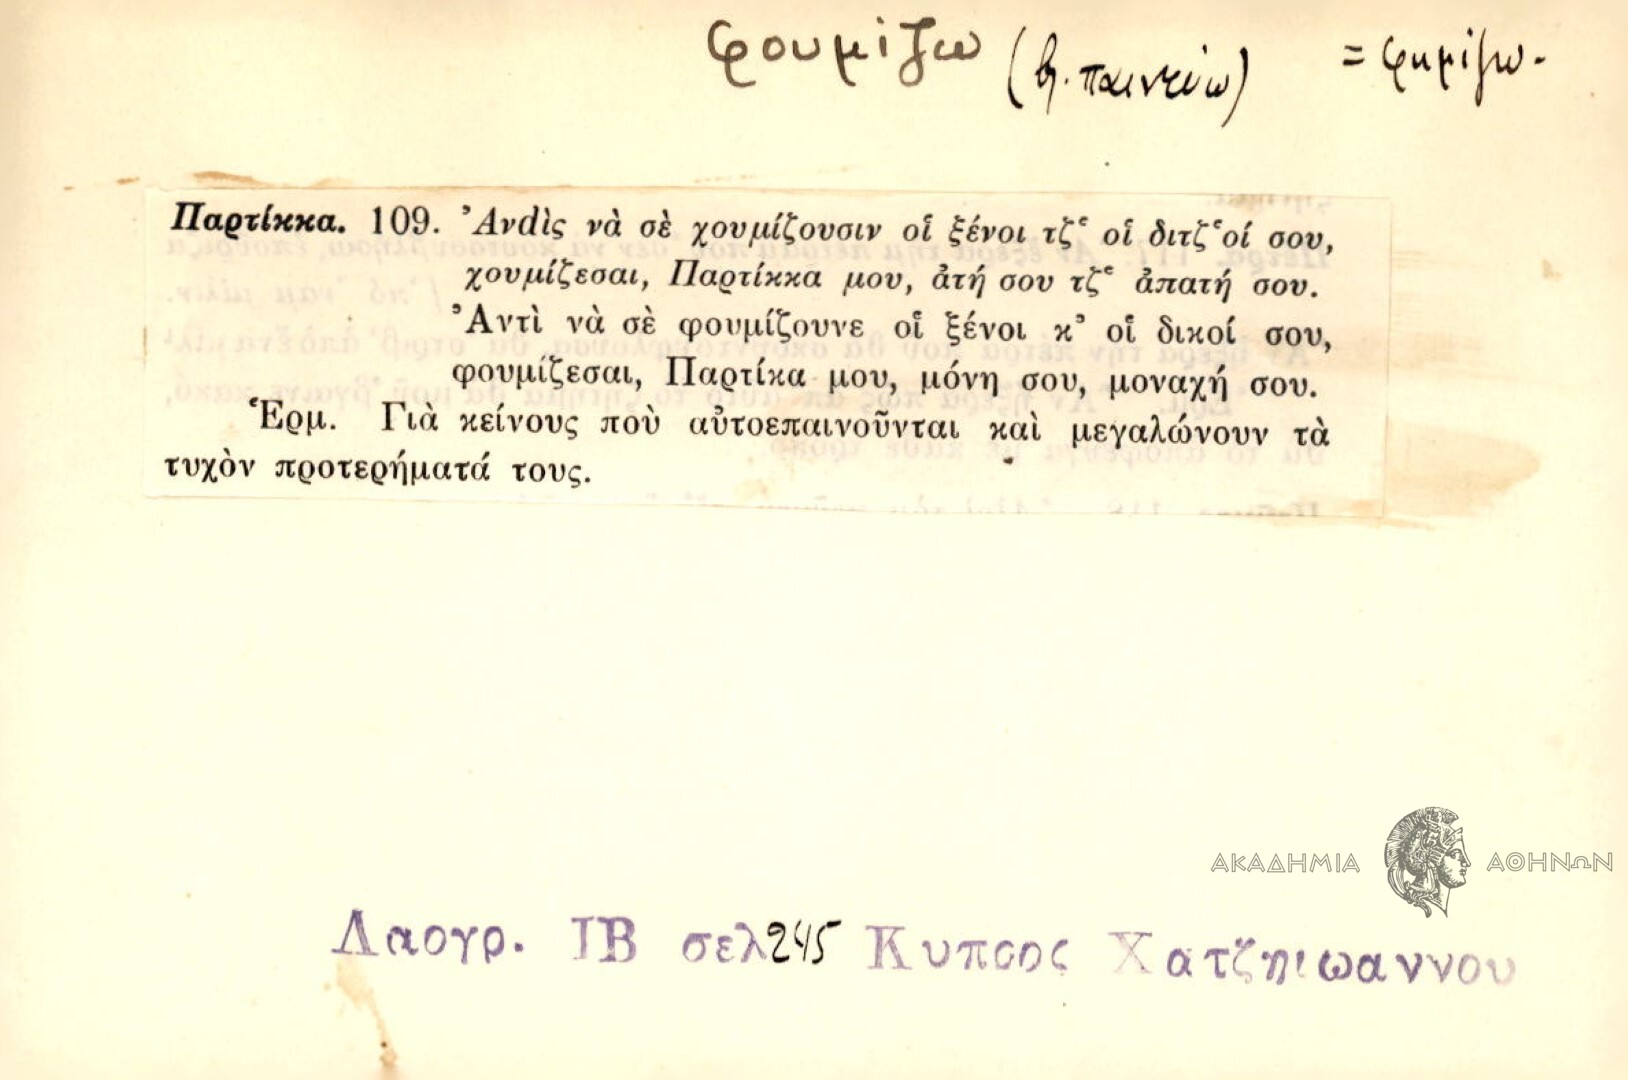 φουμίζω (βλ. παινεύω) = φημίζω.
Παρτίκκα. 109. Ἀνdὶς νὰ σὲ χουμίζουσιν οἱ ξένοι τζ̔ οἱ διτζ̔οί σου,
χουμίζεσαι, Παρτίκκα μου, ἀτή σου τζ̔ ἀπατή σου.
Ἀντὶ νὰ σὲ φουμίζουνε οἱ ξένοι κ᾽ οἱ δικοί σου,
φουμίζεσαι, Παρτίκα μου, μόνη σου, μοναχή σου.
Ἑρμ. Γιὰ κείνους ποὺ αὐτοεπαινοῦνται καὶ μεγαλώνουν τὰ
τυχὸν προτερήματά τους.
ΑΚΑΔΗΜΙΑ ΑΘΗΝΩΝ
Λαογρ. ΙΒ σελ 245 Κυπρος Χατζηιωαννου